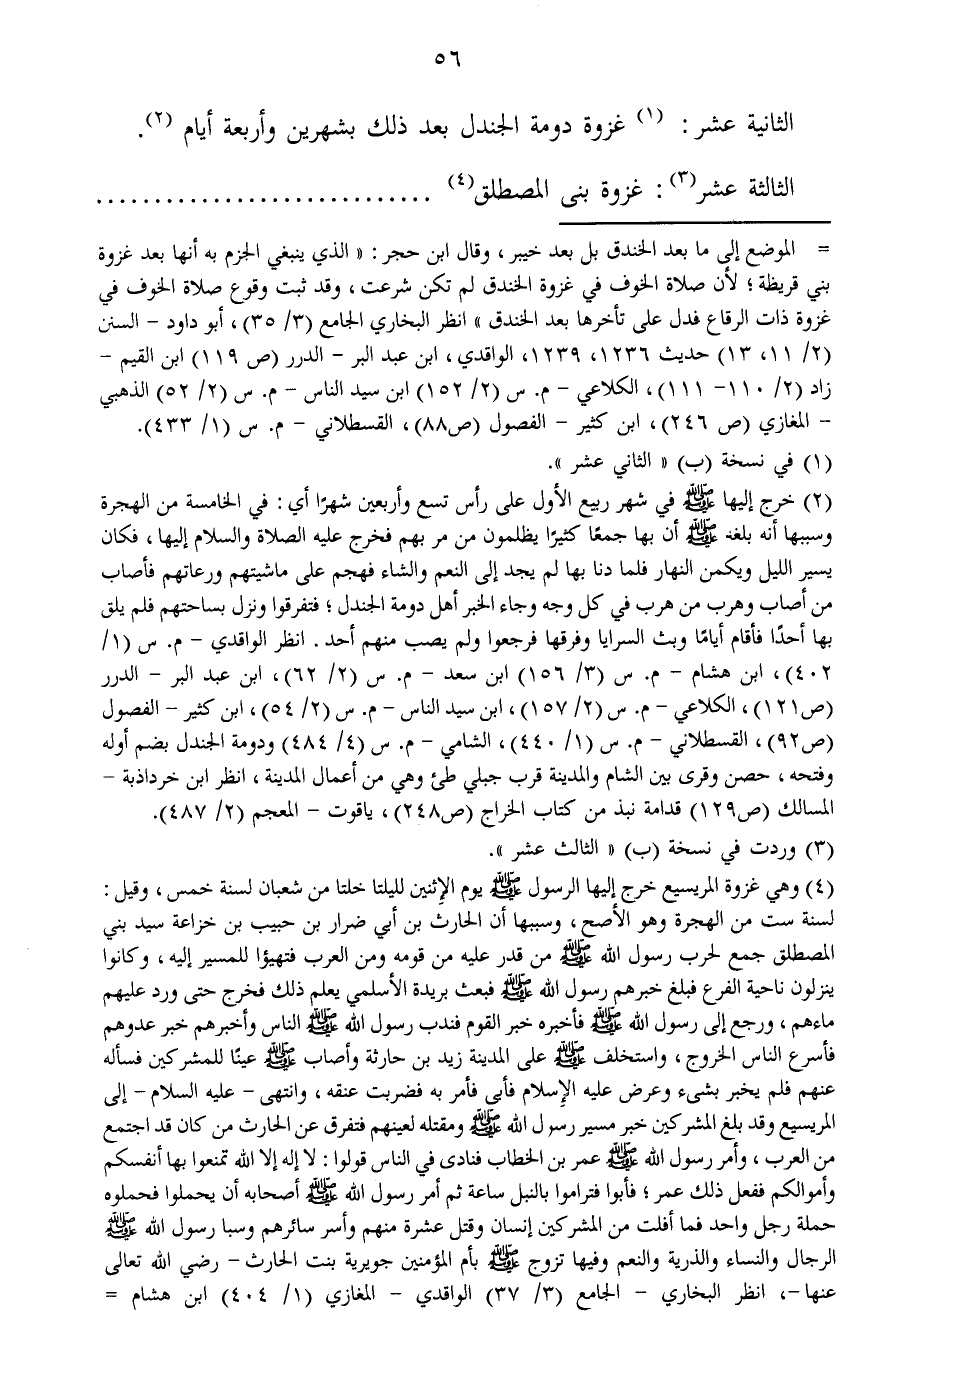 ٥٦
الثانية عشر : (١) غزوة دومة الجندل بعد ذلك بشهرين وأربعة أيام (٢).
الثالثة عشر(٣) : غزوة بنى المصطلق(٤) .............................
= الموضع إلى ما بعد الخندق بل بعد خيبر ، وقال ابن حجر : « الذي ينبغي الجزم به أنها بعد غزوة
بني قريظة ؛ لأن صلاة الخوف في غزوة الخندق لم تكن شرعت ، وقد ثبت وقوع صلاة الخوف في
غزوة ذات الرقاع فدل على تأخرها بعد الخندق » انظر البخاري الجامع (٣/ ٣٥) ، أبو داود – السنن
(٢/ ١١، ١٣) حديث ١٢٣٦، ١٢٣٩، الواقدي ، ابن عبد البر – الدرر (ص ١١٩) ابن القيم –
زاد (٢/ ١١٠– ١١١) ، الكلاعي – م. س (٢/ ١٥٢) ابن سيد الناس – م. س (٢/ ٥٢) الذهبي
– المغازي (ص ٢٤٦) ، ابن كثير – الفصول (ص٨٨) ، القسطلاني – م. س (١/ ٤٣٣).
(١) في نسخة (ب) « الثاني عشر ».
(٢) خرج إليها ﷺ في شهر ربيع الأول على رأس تسع وأربعين شهرًا أي : في الخامسة من الهجرة
وسببها أنه بلغه ﷺ أن بها جمعًا كثيرًا يظلمون من مر بهم فخرج عليه الصلاة والسلام إليها ، فكان
يسير الليل ويكمن النهار فلما دنا بها لم يجد إلى النعم والشاء فهجم على ماشيتهم ورعاتهم فأصاب
من أصاب وهرب من هرب في كل وجه وجاء الخبر أهل دومة الجندل ؛ فتفرقوا ونزل بساحتهم فلم يلق
بها أحدًا فأقام أيامًا وبث السرايا وفرقها فرجعوا ولم يصب منهم أحد . انظر الواقدي – م. س (١/
٤٠٢) ، ابن هشام – م. س (٣/ ١٥٦) ابن سعد – م. س (٢/ ٦٢) ، ابن عبد البر – الدرر
(ص١٢١) ، الكلاعي – م. س (٢/ ١٥٧) ، ابن سيد الناس – م. س (٢/ ٥٤) ، ابن كثير – الفصول
(ص٩٢) ، القسطلاني – م. س (١/ ٤٤٠) ، الشامي – م. س (٤/ ٤٨٤) ودومة الجندل بضم أوله
وفتحه ، حصن وقرى بين الشام والمدينة قرب جبلي طئ وهي من أعمال المدينة ، انظر ابن خرداذبة –
المسالك (ص١٢٩) قدامة نبذ من كتاب الخراج (ص٢٤٨) ، ياقوت – المعجم (٢/ ٤٨٧).
(٣) وردت في نسخة (ب) « الثالث عشر ».
(٤) وهي غزوة المريسيع خرج إليها الرسول ﷺ يوم الإثنين لليلتا خلتا من شعبان لسنة خمس ، وقيل :
لسنة ست من الهجرة وهو الأصح ، وسببها أن الحارث بن أبي ضرار بن حبيب بن خزاعة سيد بني
المصطلق جمع لحرب رسول الله ﷺ من قدر عليه من قومه ومن العرب فتهيؤا للمسير إليه ، وكانوا
ينزلون ناحية الفرع فبلغ خبرهم رسول الله ﷺ فبعث بريدة الأسلمي يعلم ذلك فخرج حتى ورد عليهم
ماءهم ، ورجع إلى رسول الله ﷺ فأخبره خبر القوم فندب رسول الله ﷺ الناس وأخبرهم خبر عدوهم
فأسرع الناس الخروج ، واستخلف ﷺ على المدينة زيد بن حارثة وأصاب ﷺ عينًا للمشركين فسأله
عنهم فلم يخبر بشىء وعرض عليه الإسلام فأبى فأمر به فضربت عنقه ، وانتهى – عليه السلام – إلى
المريسيع وقد بلغ المشركين خبر مسير رسول الله ﷺ ومقتله لعينهم فتفرق عن الحارث من كان قد اجتمع
من العرب ، وأمر رسول الله ﷺ عمر بن الخطاب فنادى في الناس قولوا : لا إله إلا الله تمنعوا بها أنفسكم
وأموالكم ففعل ذلك عمر ؛ فأبوا فتراموا بالنبل ساعة ثم أمر رسول الله ﷺ أصحابه أن يحملوا فحملوه
حملة رجل واحد فما أفلت من المشركين إنسان وقتل عشرة منهم وأسر سائرهم وسبا رسول الله ﷺ
الرجال والنساء والذرية والنعم وفيها تزوج ﷺ بأم المؤمنين جويرية بنت الحارث – رضي الله تعالى
عنها –، انظر البخاري – الجامع (٣/ ٣٧) الواقدي – المغازي (١/ ٤٠٤) ابن هشام =